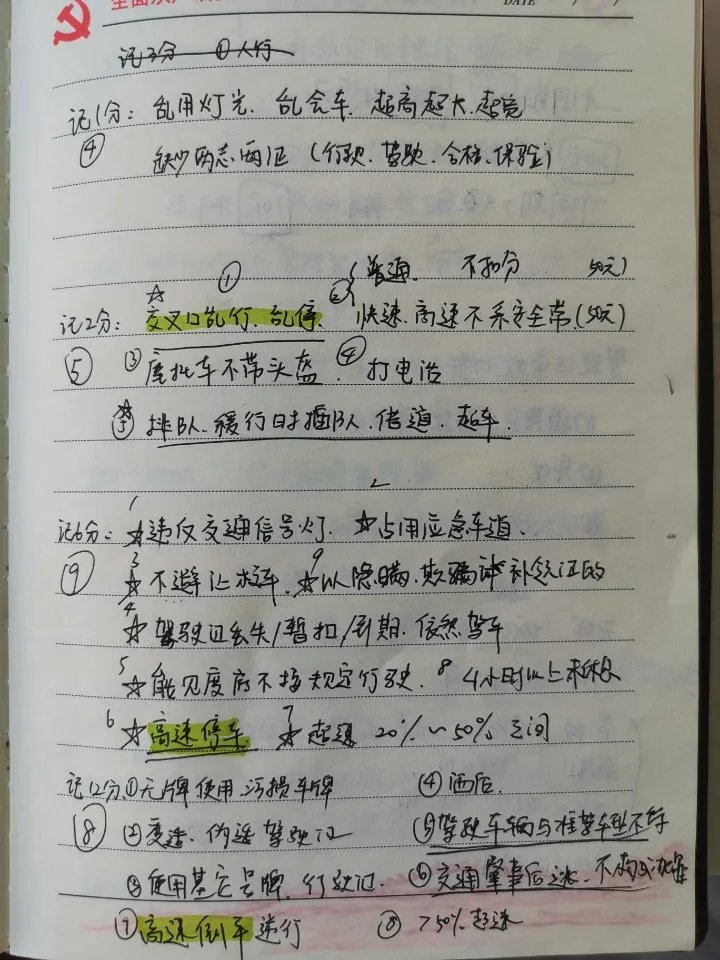 DATE / /
记3分 ①人行
记1分: 乱用灯光、乱会车、超高超大、超宽
④ 缺少两志、两证 (行驶、驾驶、合格、保险)
① ② 普通、不扣分 50元)
记2分: ☆交叉口乱行、乱停、快速、高速不系安全带、(50元)
⑤ ③摩托车不带头盔 ④打电话
⑤☆排队、缓行时插队、借道、超车、
记6分: 1☆违反交通信号灯、 2☆占用应急车道、
⑨ 3☆不避让校车、 9☆以隐瞒、欺骗补领证的
4☆驾驶证丢失/暂扣/到期、依然驾车
5☆能见度底不按规定行驶、 8 4小时以上未休息
6☆高速停车 7☆超速 20% ~ 50% 之间
记12分、①无牌使用、污损车牌 ④酒后、
⑧ ②变造、伪造驾驶证 ⑤驾驶车辆与准驾车型不符
③使用其它号牌、行驶证、 ⑥交通肇事后逃、不构成犯罪
⑦高速倒车逆行 ⑧ >50% 超速